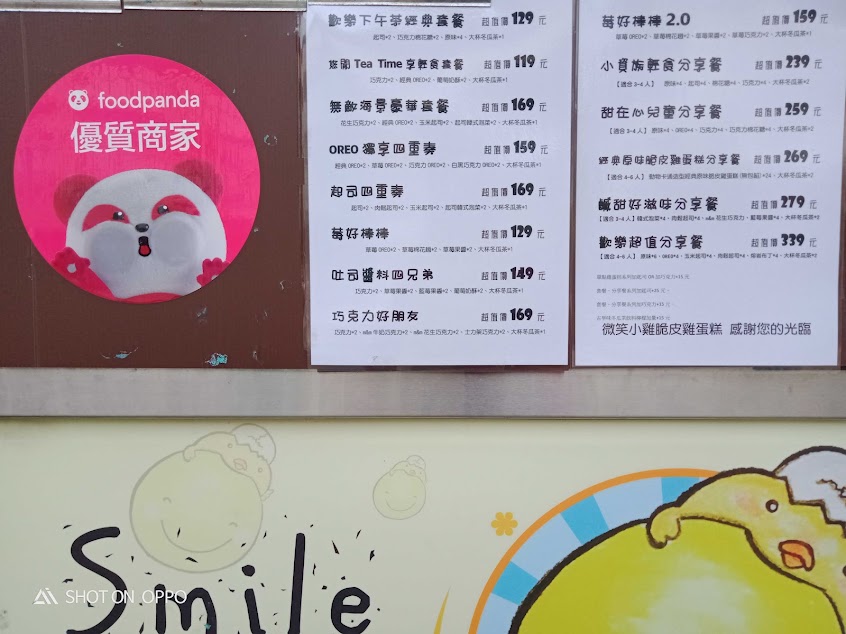 foodpanda
優質商家
歡樂下午茶經典套餐 超值價129元
起司*2、巧克力棉花糖*2、原味*4、大杯冬瓜茶*1
悠閒Tea Time享輕食套餐 超值價119元
巧克力*2、經典OREO*2、葡萄奶酥*2、大杯冬瓜茶*1
無敵海景豪華套餐 超值價169元
花生巧克力*2、經典OREO*2、玉米起司*2、起司韓式泡菜*2、大杯冬瓜茶*1
OREO獨享四重奏 超值價159元
經典OREO*2、草莓OREO*2、巧克力OREO*2、白黑巧克力OREO*2、大杯冬瓜茶*1
起司四重奏 超值價169元
起司*2、肉鬆起司*2、玉米起司*2、起司韓式泡菜*2、大杯冬瓜茶*1
莓好棒棒 超值價129元
草莓OREO*2、草莓棉花糖*2、草莓果醬*2、大杯冬瓜茶*1
吐司醬料四兄弟 超值價149元
巧克力*2、草莓果醬*2、藍莓果醬*2、葡萄奶酥*2、大杯冬瓜茶*1
巧克力好朋友 超值價169元
巧克力*2、m&m牛奶巧克力*2、m&m花生巧克力*2、士力架巧克力*2、大杯冬瓜茶*1
莓好棒棒2.0 超值價159元
草莓OREO*2、草莓棉花糖*2、草莓果醬*2、草莓巧克力*2、大杯冬瓜茶*1
小資族輕食分享餐 超值價239元
【適合3-4人】 原味*4、起司*4、棉花糖*4、巧克力*4、大杯冬瓜茶*2
甜在心兒童分享餐 超值價259元
【適合3-4人】 原味*4、OREO*4、巧克力*4、巧克力棉花糖*4、大杯冬瓜茶*2
經典原味脆皮雞蛋糕分享餐 超值價269元
【適合4-6人】 動物卡通造型經典原味脆皮雞蛋糕(無包餡)*24、大杯冬瓜茶*2
鹹甜好滋味分享餐 超值價279元
【適合3-4人】韓式泡菜*4、肉鬆起司*4、m&m花生巧克力、藍莓果醬*4、大杯冬瓜茶*2
歡樂超值分享餐 超值價339元
【適合4-6人】 原味*6、OREO*4、玉米起司*4、肉鬆起司*4、焦糖布丁*4、大杯冬瓜茶*2
微笑小雞脆皮雞蛋糕 感謝您的光臨
Smile
SHOT ON OPPO